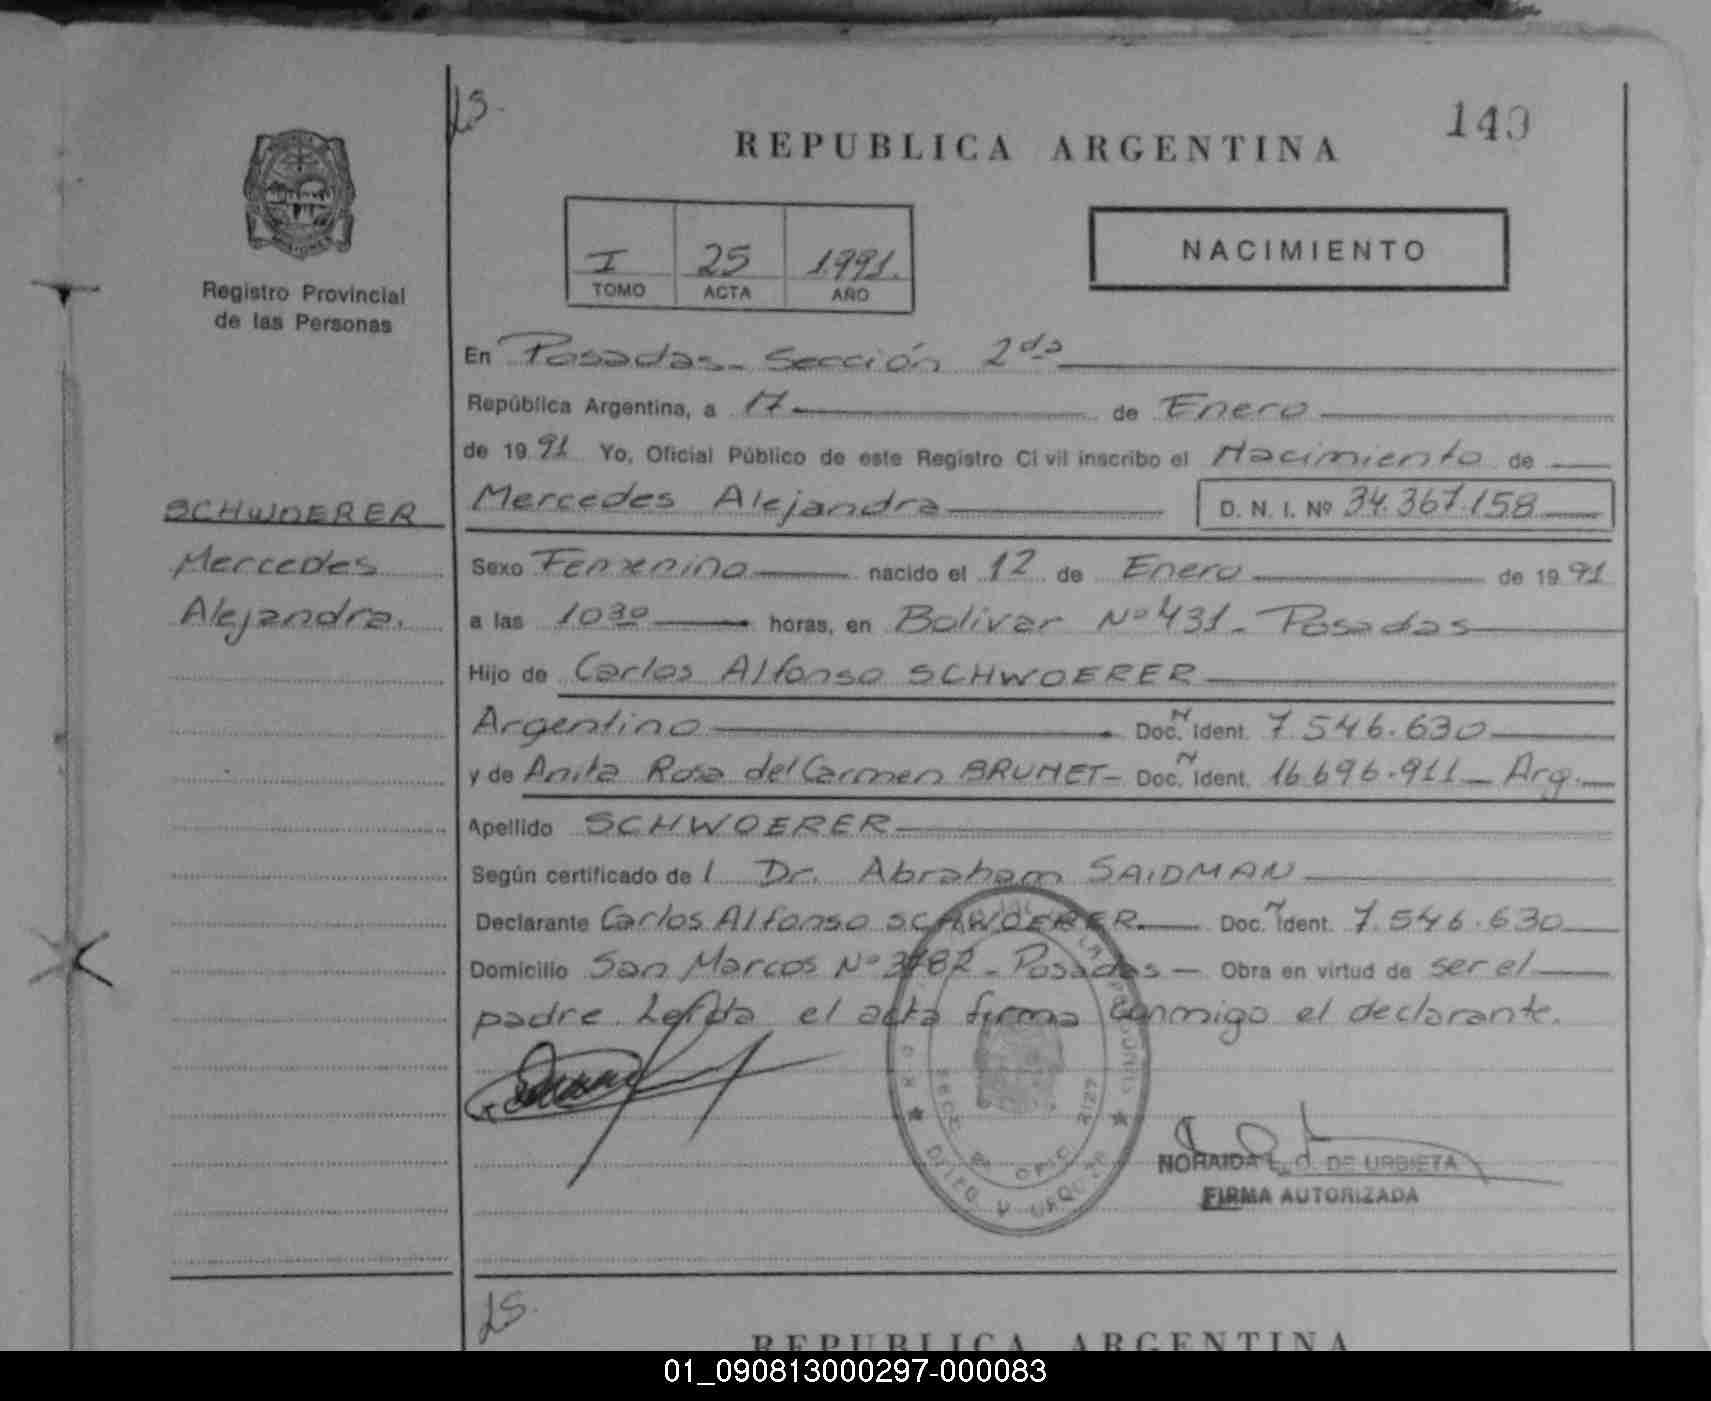 LS.
149
REPUBLICA ARGENTINA
I 25 1991.
TOMO ACTA AÑO
NACIMIENTO
Registro Provincial
de las Personas
SCHWOERER
Mercedes
Alejandra.
En Posadas - Sección 2da
República Argentina, a 17 de Enero
de 1991 Yo, Oficial Público de este Registro Civil inscribo el Nacimiento de
Mercedes Alejandra D. N. I. Nº 34.367.158
Sexo Femenino nacido el 12 de Enero de 1991
a las 10 30 horas, en Bolivar Nº 431 - Posadas
Hijo de Carlos Alfonso SCHWOERER
Argentino Doc. N Ident. 7.546.630
y de Anita Rosa del Carmen BRUNET - Doc. N Ident. 16.696.911 - Arg.
Apellido SCHWOERER
Según certificado de l Dr. Abraham SAIDMAN
Declarante Carlos Alfonso SCHWOERER. Doc. N Ident. 7.546.630
Domicilio San Marcos Nº 3782 - Posadas - Obra en virtud de ser el
padre. Leída el acta firma conmigo el declarante.
NORAIDA DE URBIETA
FIRMA AUTORIZADA
LS.
REPUBLICA ARGENTINA
01_090813000297-000083